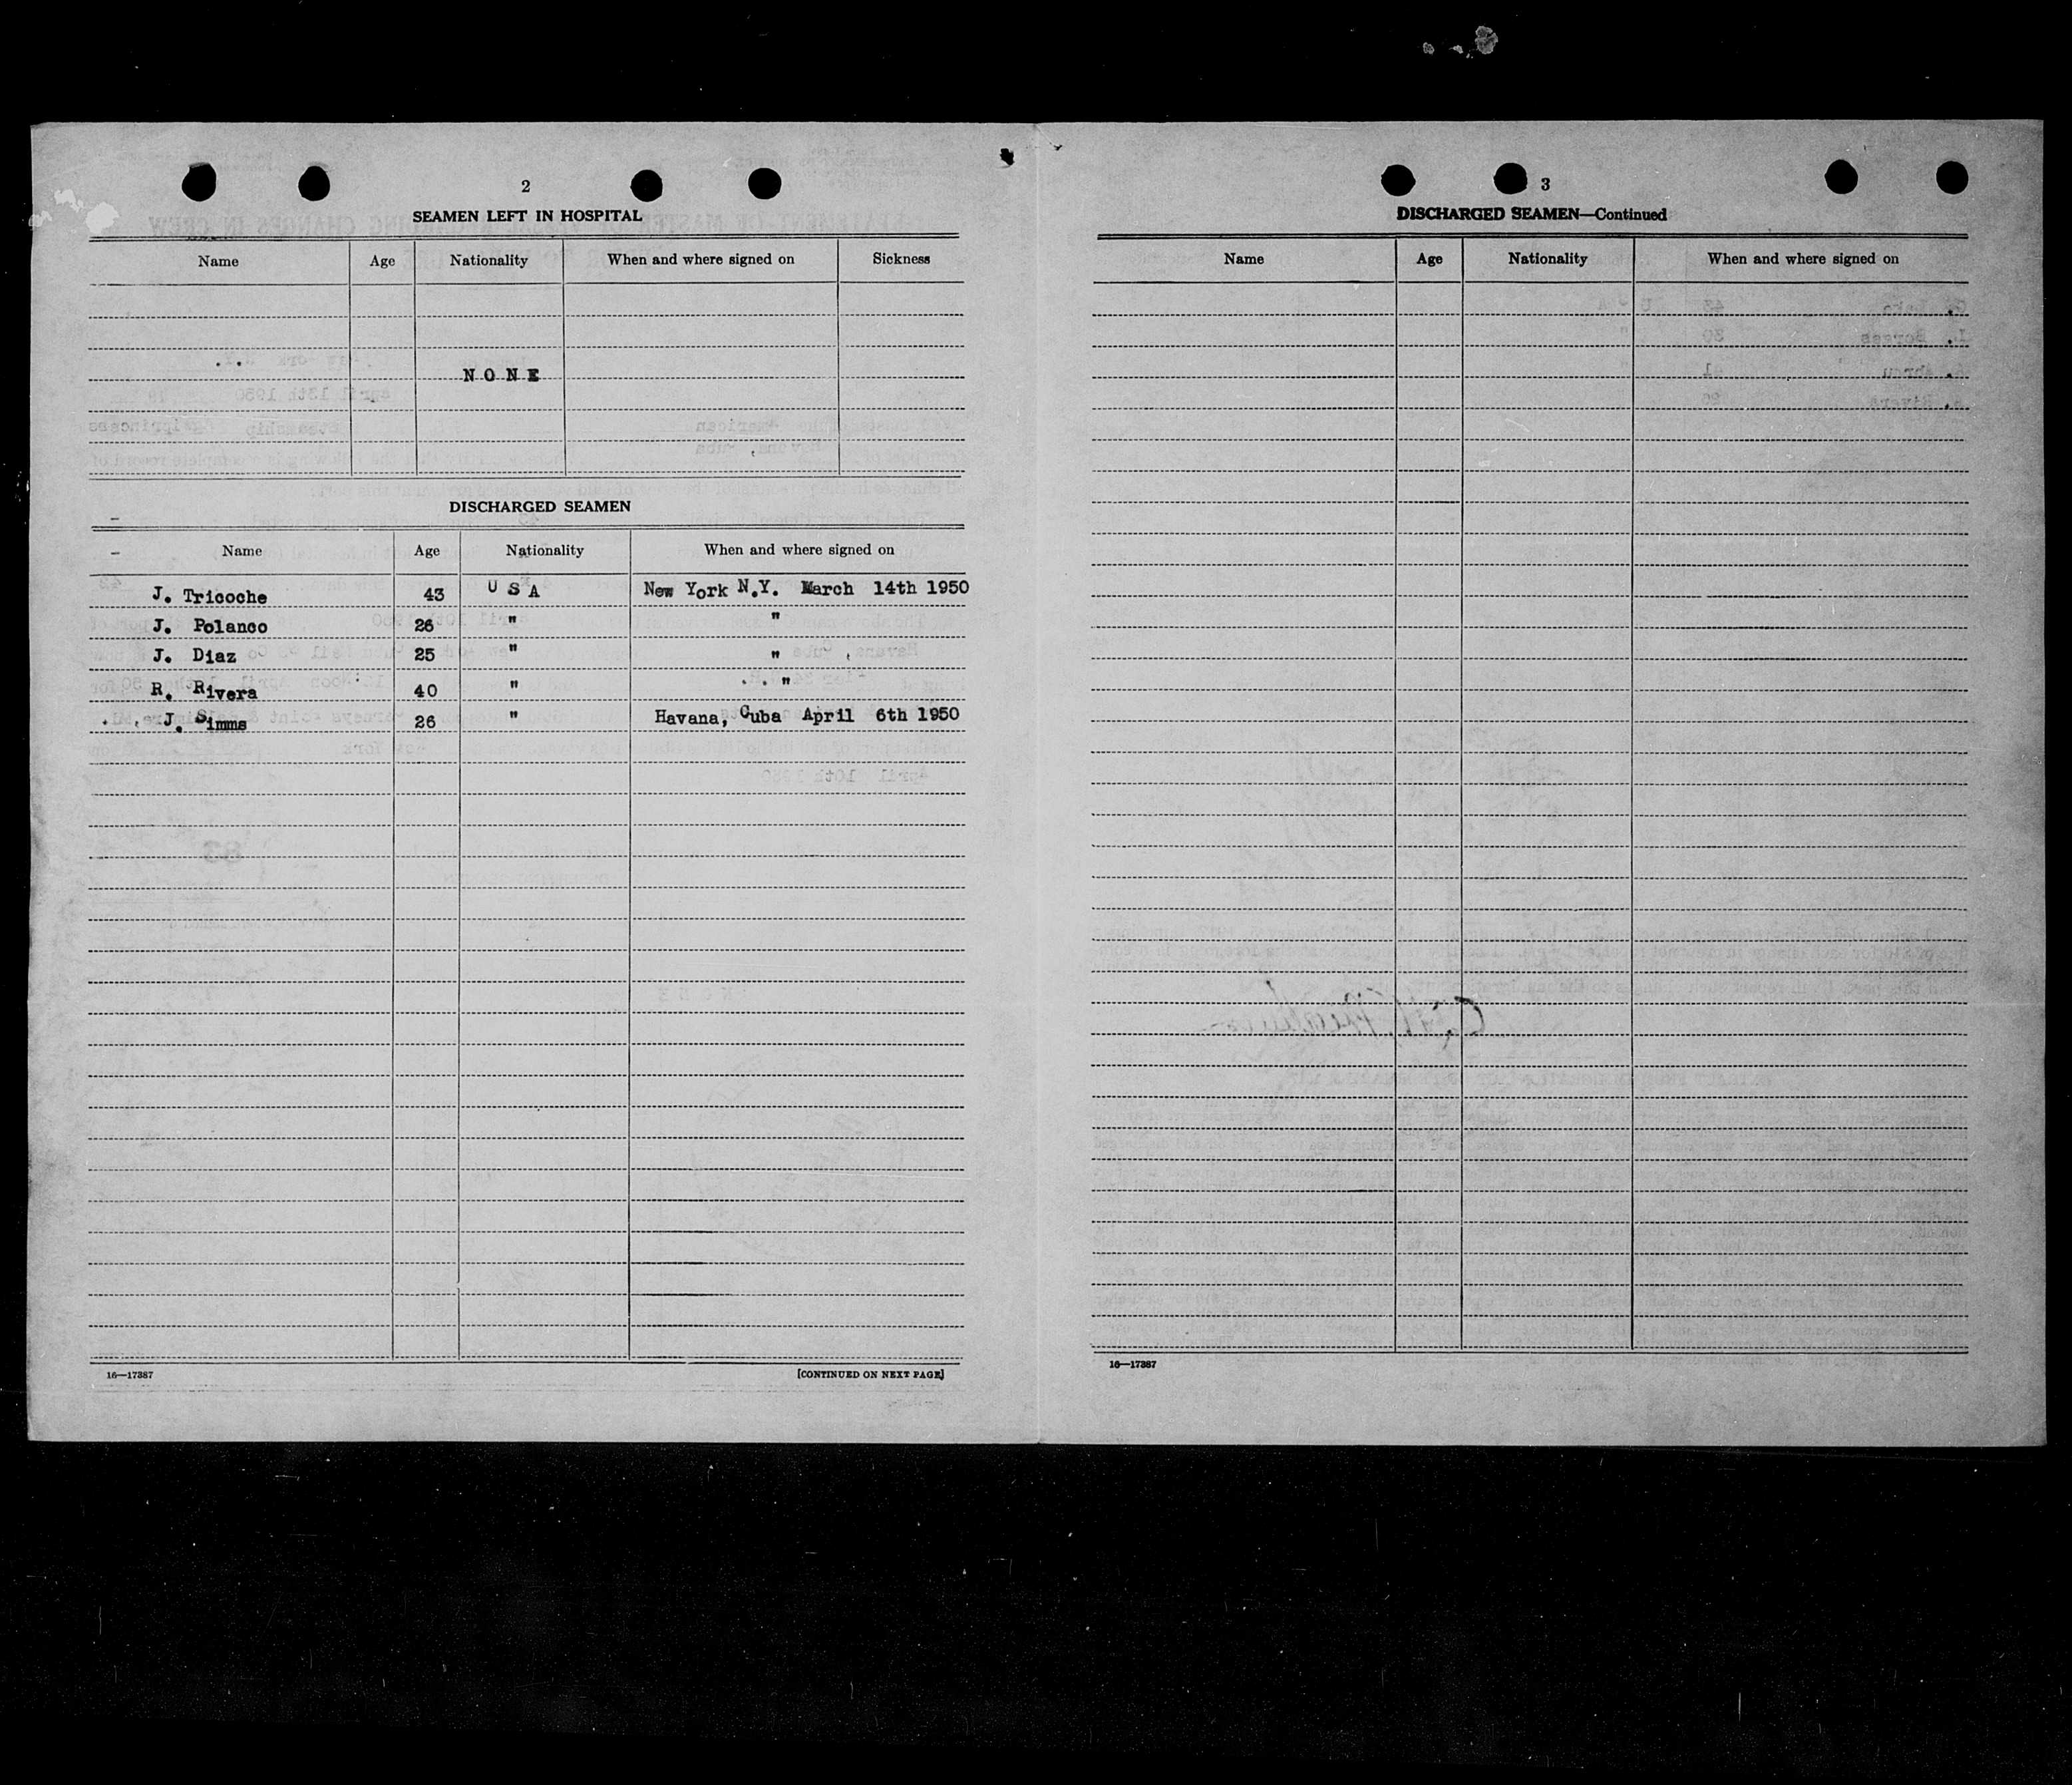 2
SEAMEN LEFT IN HOSPITAL
Name Age Nationality When and where signed on Sickness
N O N E
DISCHARGED SEAMEN
Name Age Nationality When and where signed on
J. Tricoche 43 U S A New York N.Y. March 14th 1950
J. Polanco 26 " "
J. Diaz 25 " "
R. Rivera 40 " "
J. Simms 26 " Havana, Cuba April 6th 1950
16—17387 [CONTINUED ON NEXT PAGE]
3
DISCHARGED SEAMEN—Continued
Name Age Nationality When and where signed on
16—17387